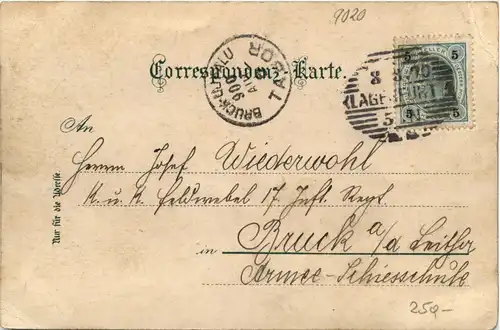 9020
Correspondenz-Karte.
BRUCK-UJFALU
900
TABOR
5 HELLER 5
KLAGENFURT 1
5 5
An
Herrn Josef Wiederwohl
K. u. K. Feldwebel 17. Inft. Regt.
in Bruck a/d Leitha
Armee-Schiesschule
Nur für die Adresse
250-